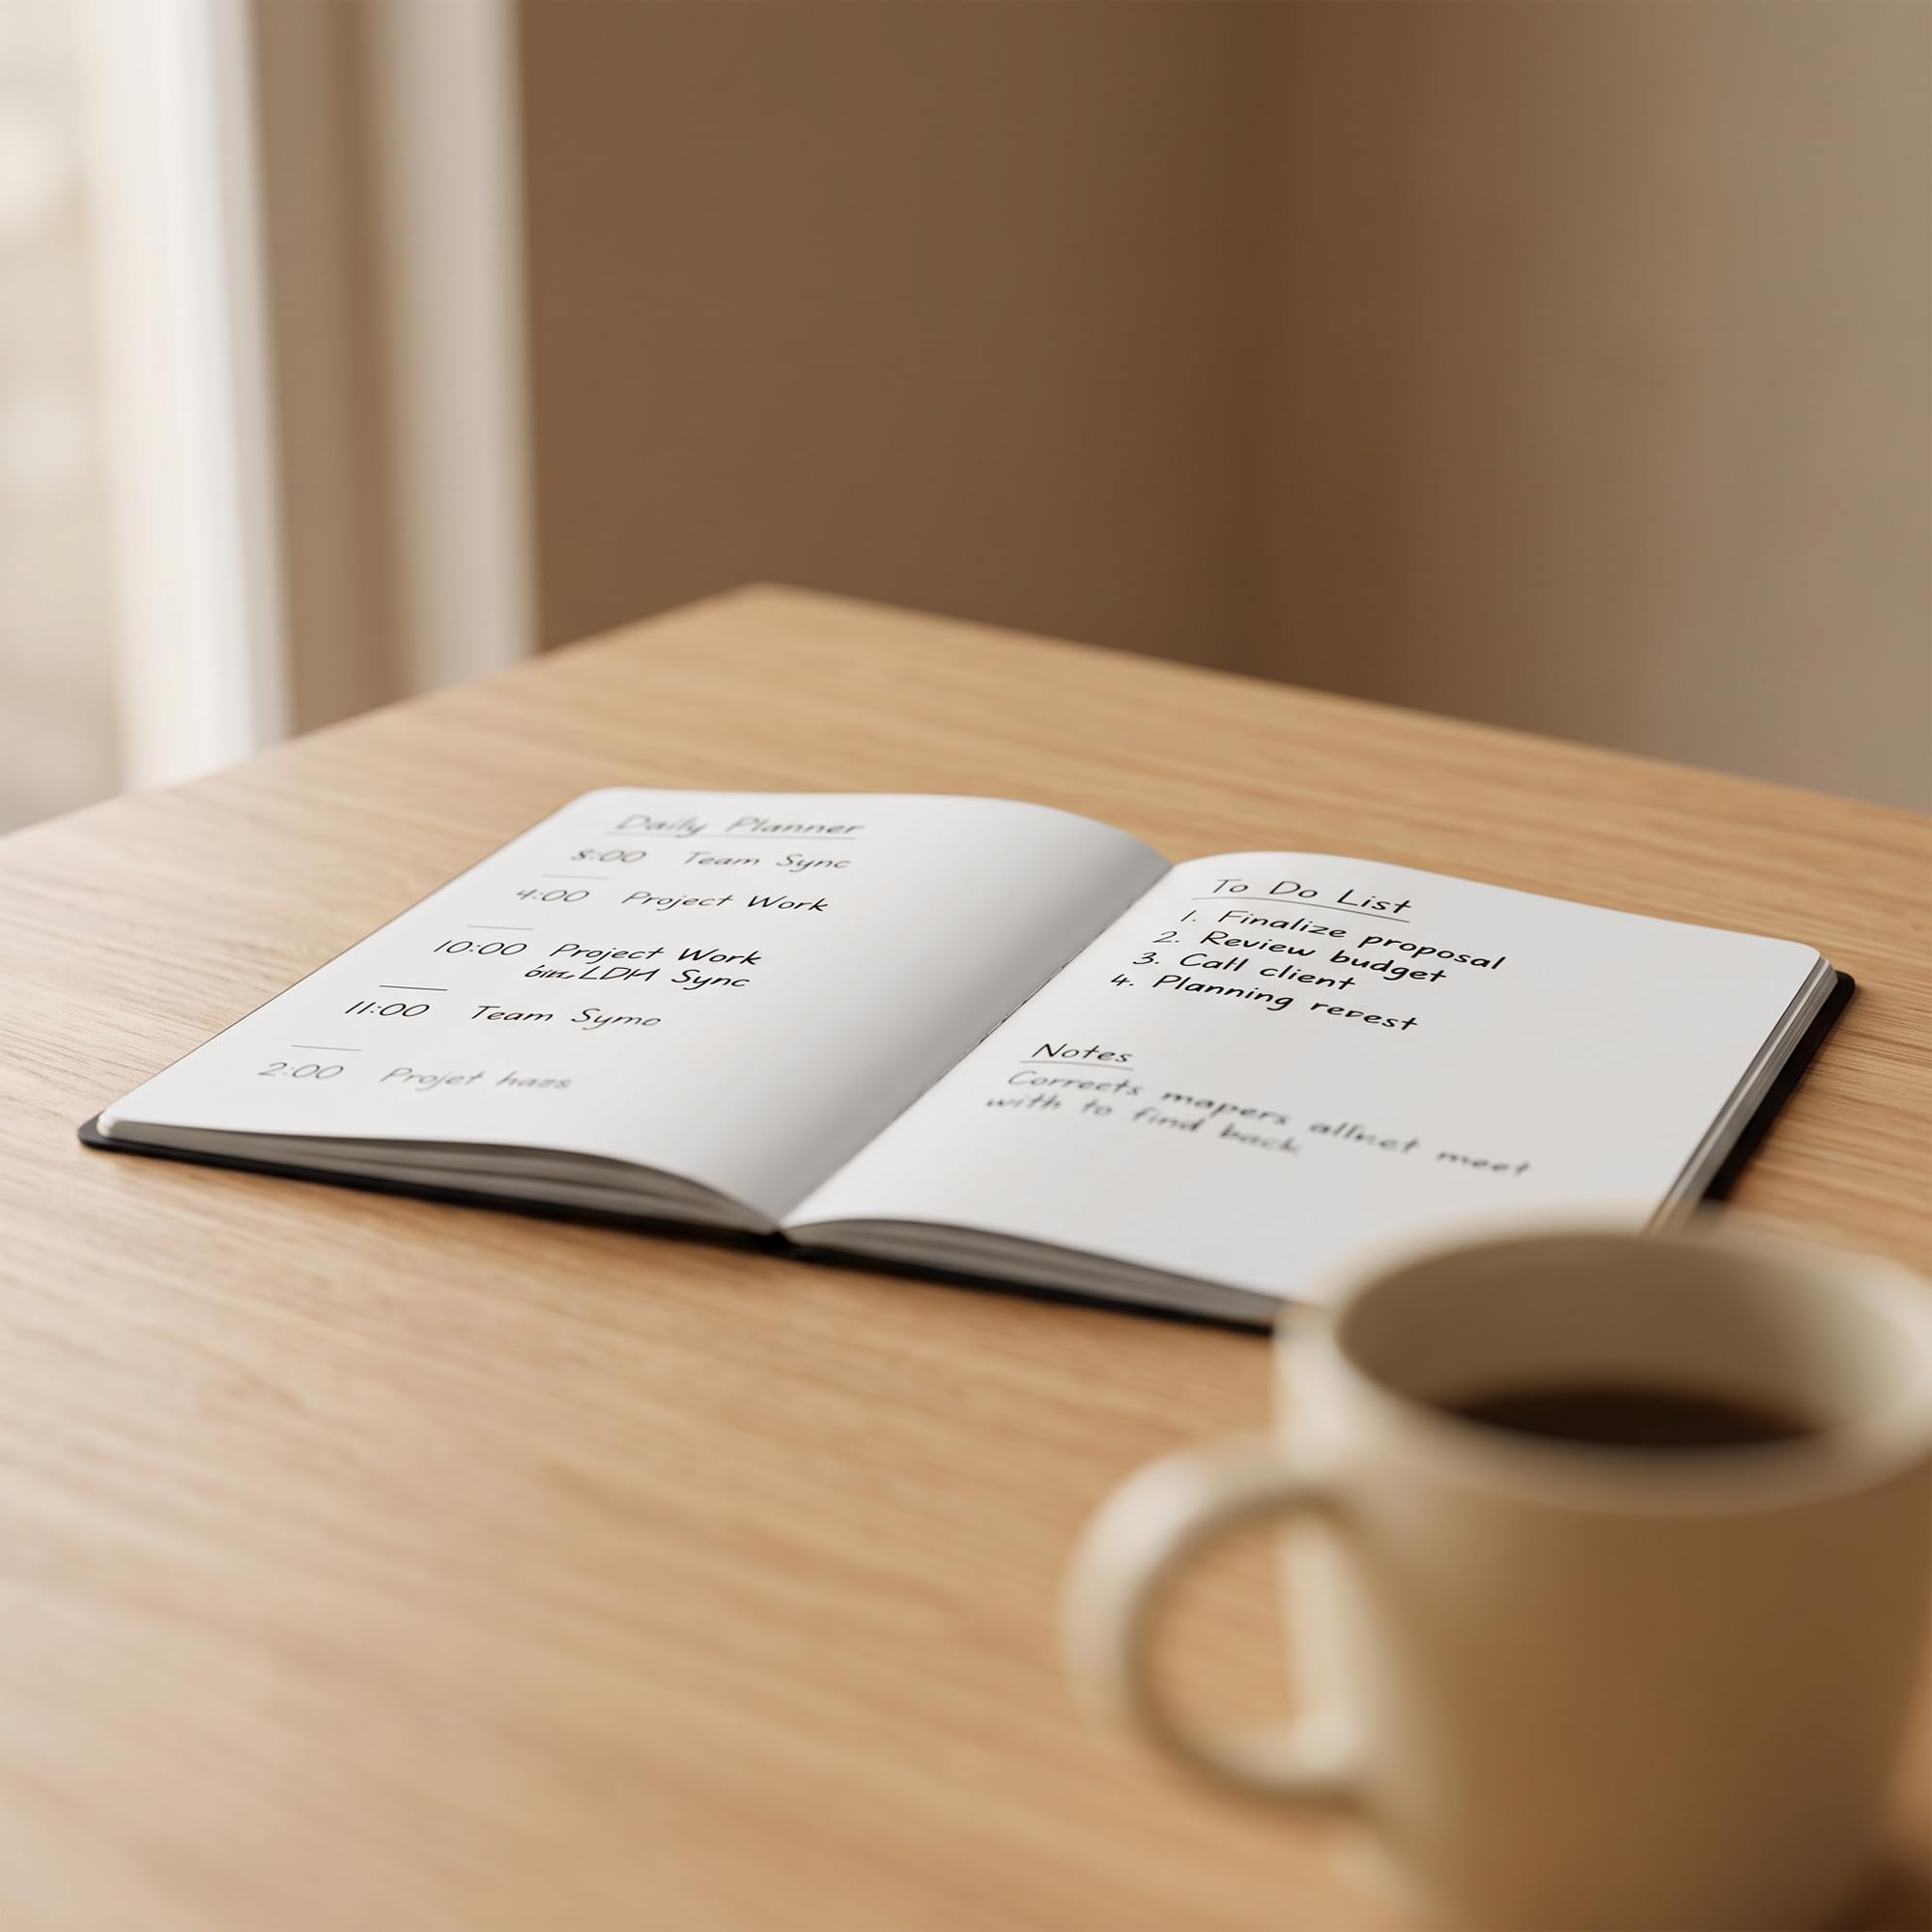 Daily Planner
8:00 Team Sync
4:00 Project Work
10:00 Project Work
LDM Sync
11:00 Team Symo
2:00 Projet haas
To Do List
1. Finalize proposal
2. Review budget
3. Call client
4. Planning revest
Notes
Correcto mapers meet
with to find back